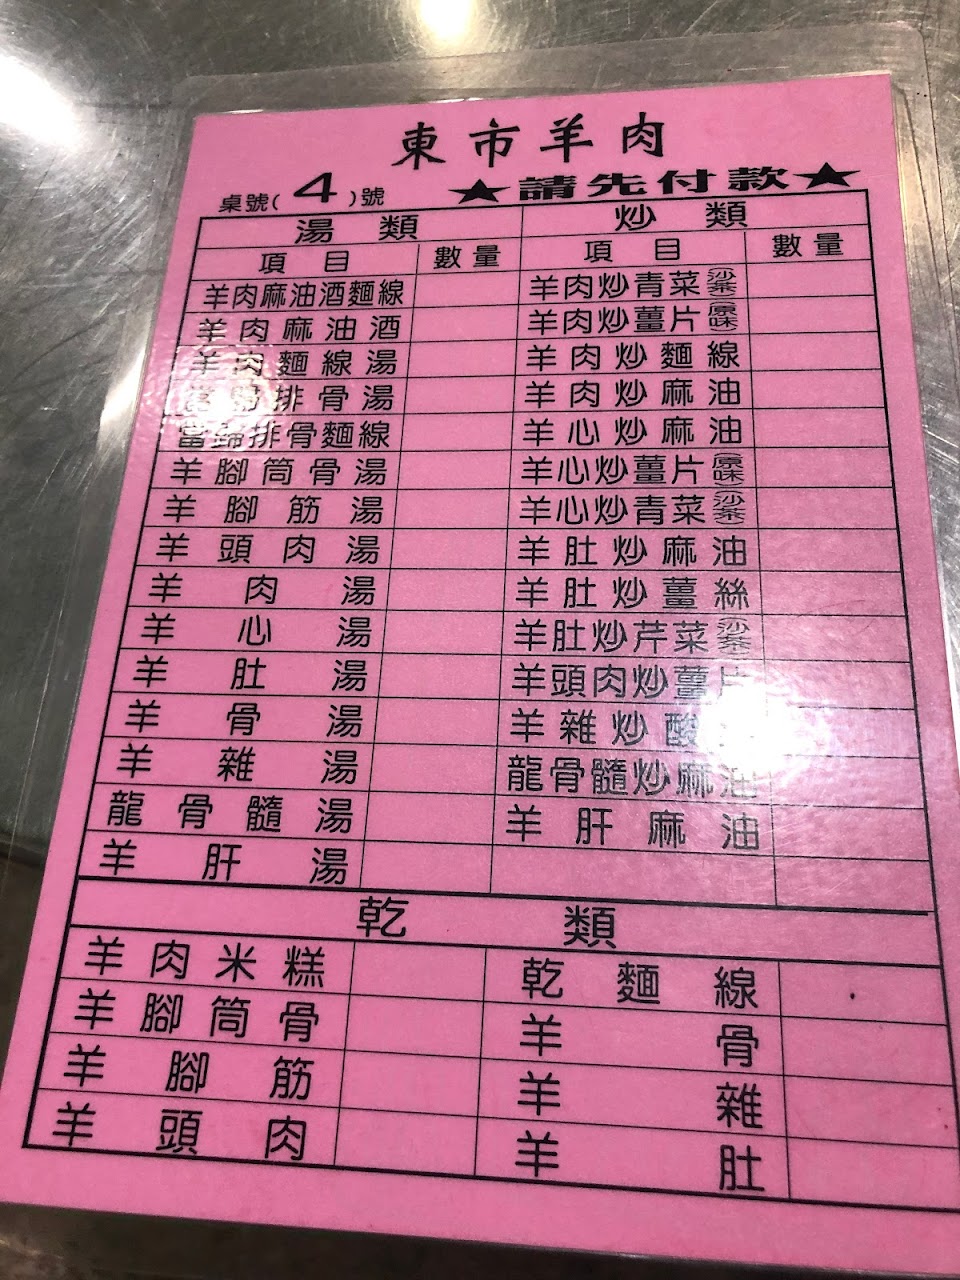 東市羊肉
桌號( 4 )號 ★請先付款★
湯類 炒類
項目 數量 項目 數量
羊肉麻油酒麵線 羊肉炒青菜(沙茶)
羊肉麻油酒 羊肉炒薑片(原味)
羊肉麵線湯 羊肉炒麵線
當歸排骨湯 羊肉炒麻油
當歸排骨麵線 羊心炒麻油
羊腳筒骨湯 羊心炒薑片(原味)
羊腳筋湯 羊心炒青菜(沙茶)
羊頭肉湯 羊肚炒麻油
羊肉湯 羊肚炒薑絲
羊心湯 羊肚炒芹菜(沙茶)
羊肚湯 羊頭肉炒薑片
羊骨湯 羊雜炒酸
羊雜湯 龍骨髓炒麻油
龍骨髓湯 羊肝麻油
羊肝湯
乾類
羊肉米糕 乾麵線
羊腳筒骨 羊骨
羊腳筋 羊雜
羊頭肉 羊肚